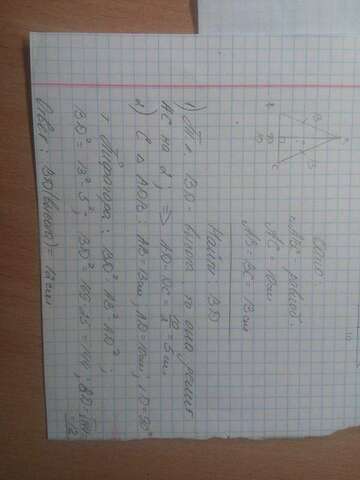 Дано:
АВС равноб.
АС = 10 см
АВ = ВС = 13 см
Найти: BD
1) Т. к. BD - высота, то она делит
АС на 2; ⇒ AD = DC = 10/2 = 5 см.
2) С Δ ADB: AB = 13 см, AD = 10 см, ∠D = 90°
т. Пифагора: BD² = AB² - AD²;
BD² = 13² - 5²; BD² = 169 - 25 = 144; BD = √144 = 12
Ответ: BD (высота) = 12 см.